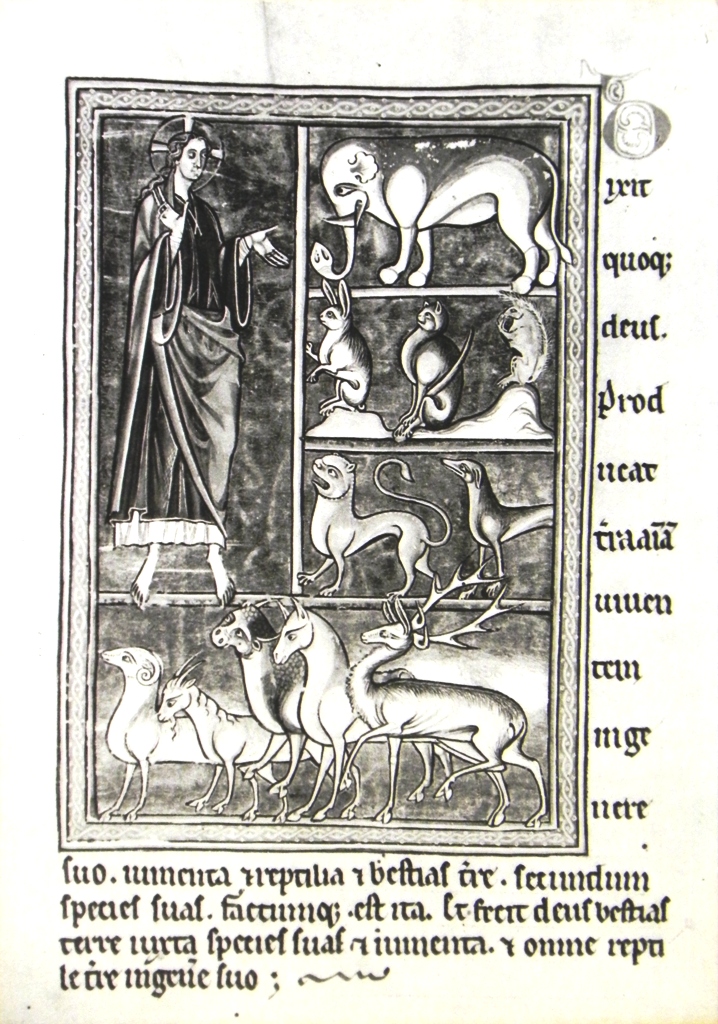 D
ixit
quoq;
deus.
Prod
ucat
t̄ra aīā
uiuen
tem
in ge
nere
suo. iumenta ⁊ reptilia ⁊ bestias t̄re. secundum
species suas. factumq; est ita. Et fecit deus bestias
terre iuxta species suas ⁊ iumenta. ⁊ omne repti
le t̄re in gen̄e suo ;